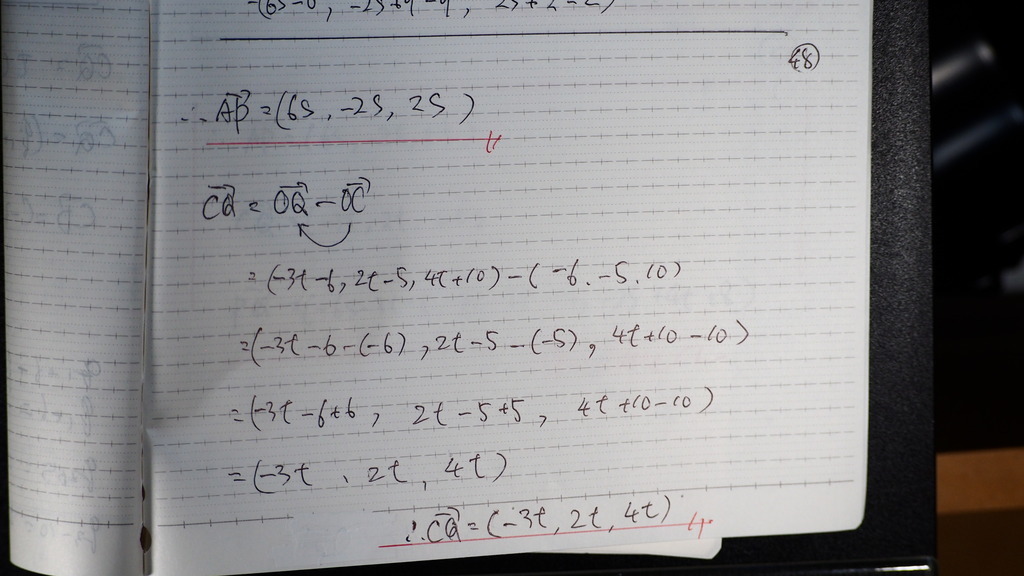 ㊽
∴ AP→ = (6S, -2S, 2S)
CQ→ = OQ→ - OC→
= (-3t-6, 2t-5, 4t+10) - (-6, -5, 10)
= (-3t-6-(-6), 2t-5-(-5), 4t+10-10)
= (-3t-6+6, 2t-5+5, 4t+10-10)
= (-3t, 2t, 4t)
∴ CQ→ = (-3t, 2t, 4t)